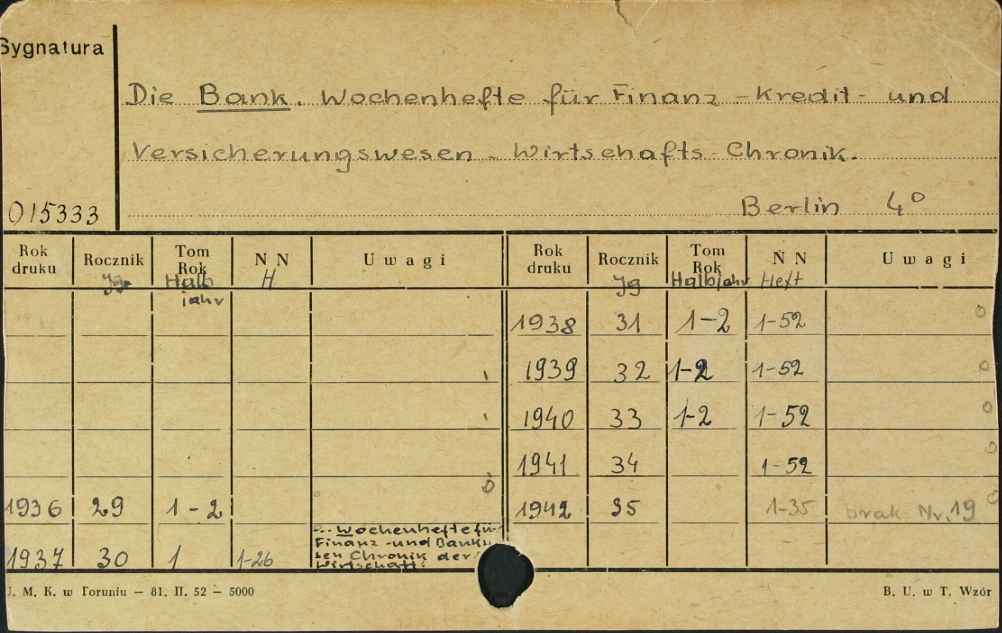 Sygnatura
Die Bank. Wochenhefte für Finanz - Kredit - und
Versicherungswesen - Wirtschafts Chronik.
015333 Berlin 4°
Rok druku Rocznik Tom Rok N N Uwagi Rok druku Rocznik Tom Rok N N Uwagi
Jg Halbjahr H Jg Halbjahr Heft
1938 31 1-2 1-52
1939 32 1-2 1-52
1940 33 1-2 1-52
1941 34 1-52
1936 29 1-2 1942 35 1-35 brak Nr. 19
1937 30 1 1-26
Wochenhefte für
Finanz - und Banku
sen Chronik der
Wirtschaft.
J. M. K. w Toruniu — 81. II. 52 — 5000 B. U. w T. Wzór